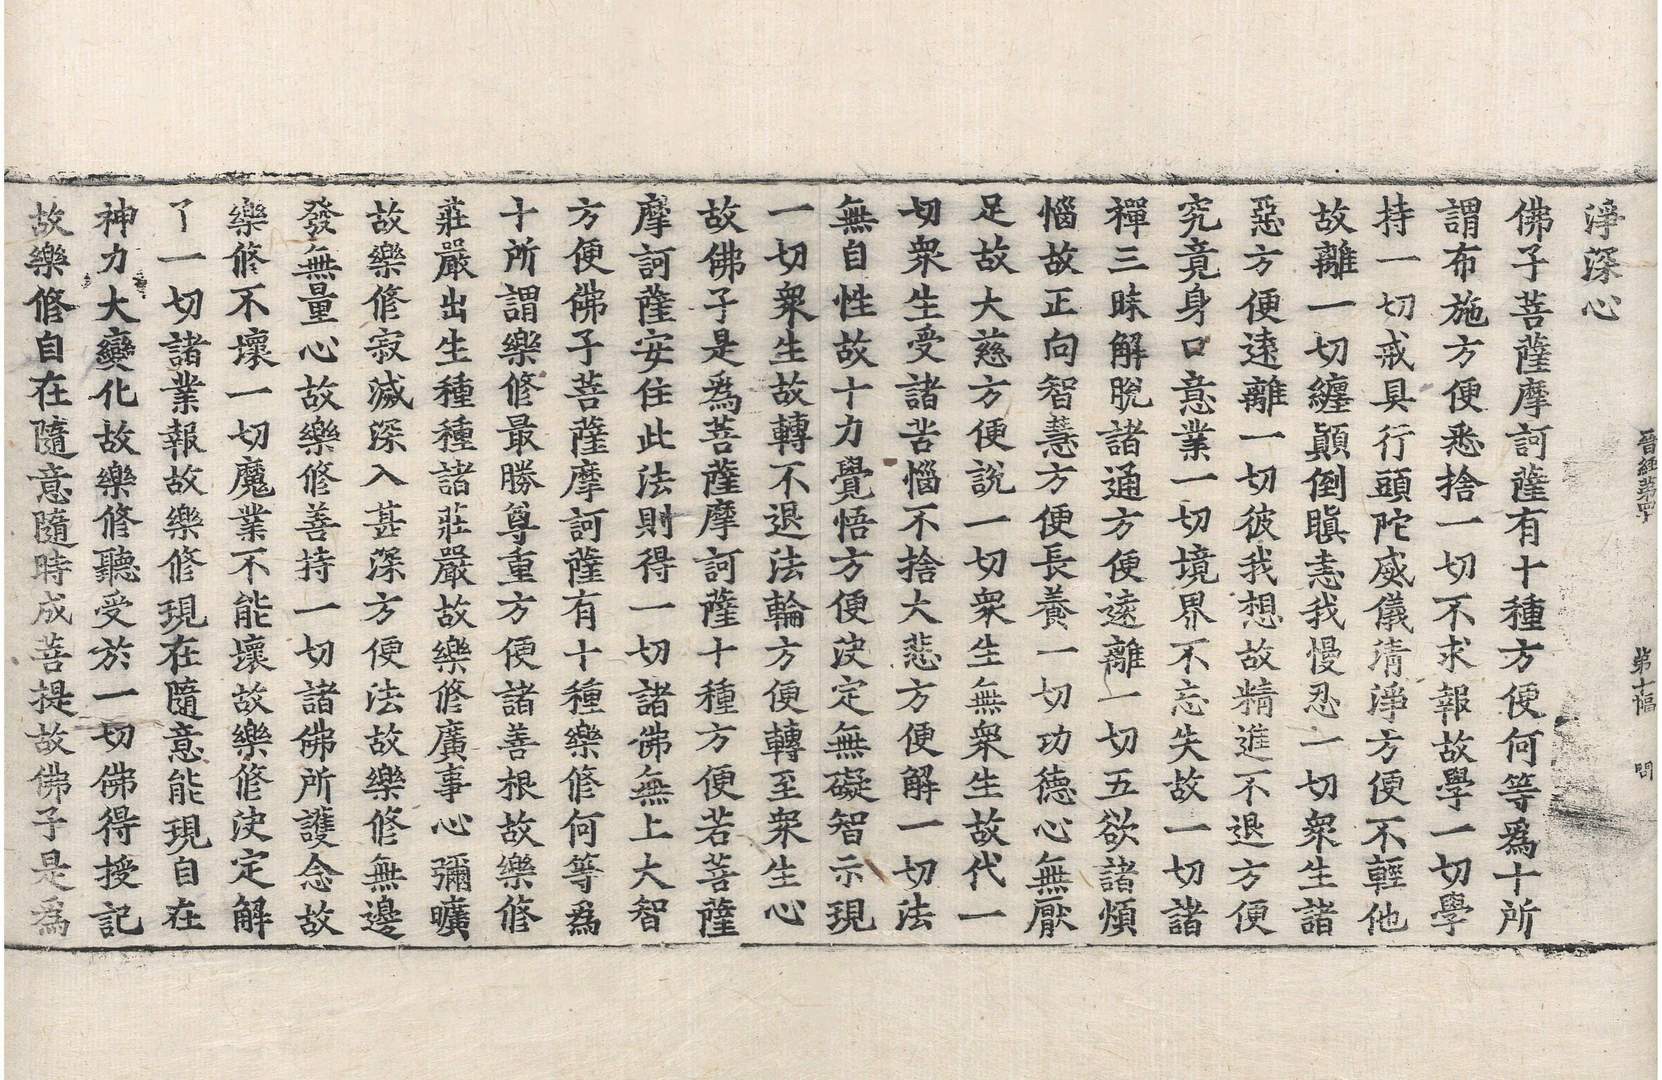 晋経第四十 第十幅 問
淨深心
佛子菩薩摩訶薩有十種方便何等爲十所
謂布施方便悉捨一切不求報故學一切學
持一切戒具行頭陀威儀清淨方便不輕他
故離一切纏顚倒瞋恚我慢忍一切衆生諸
惡方便遠離一切彼我想故精進不退方便
究竟身口意業一切境界不忘失故一切諸
禪三昧解脫諸通方便遠離一切五欲諸煩
惱故正向智慧方便長養一切功德心無厭
足故大慈方便說一切衆生無衆生故代一
切衆生受諸苦惱不捨大悲方便解一切法
無自性故十力覺悟方便決定無礙智示現
一切衆生故轉不退法輪方便轉至衆生心
故佛子是爲菩薩摩訶薩十種方便若菩薩
摩訶薩安住此法則得一切諸佛無上大智
方便佛子菩薩摩訶薩有十種樂修何等爲
十所謂樂修最勝尊重方便諸善根故樂修
莊嚴出生種種諸莊嚴故樂修廣事心彌曠
故樂修寂滅深入甚深方便法故樂修無邊
發無量心故樂修善持一切諸佛所護念故
樂修不壞一切魔業不能壞故樂修決定解
了一切諸業報故樂修現在隨意能現自在
神力大變化故樂修聽受於一切佛得授記
故樂修自在隨意隨時成菩提故佛子是爲